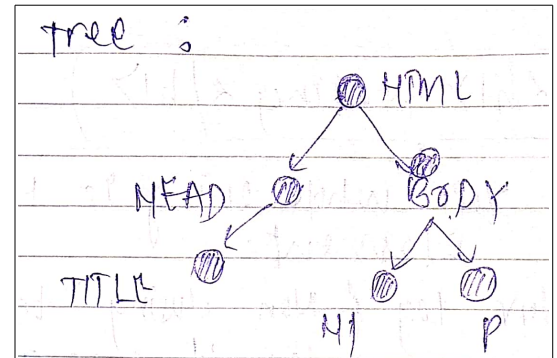 Tree :
HTML
HEAD
BODY
TITLE
H1
P